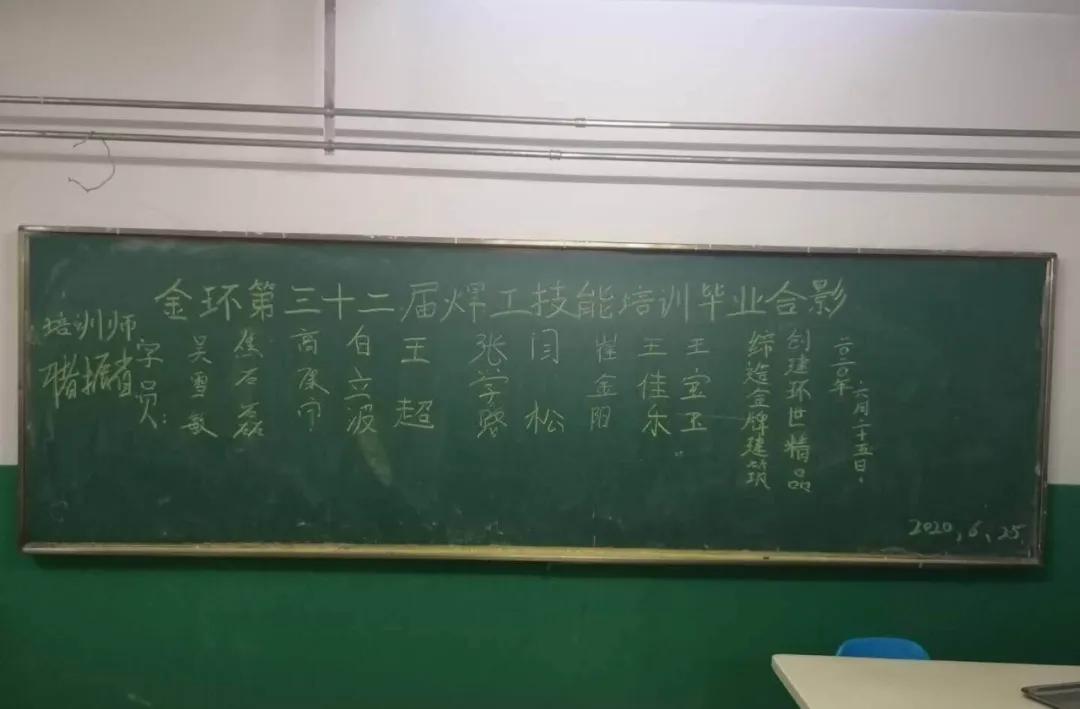 金环第三十二届焊工技能培训毕业合影
培训师
学员:
吴雪敏
焦石磊
高
白立波
王超
张学
闫松
崔金阳
王佳乐
王宝玉
缔造金牌建筑
创建环世精品
二〇二〇年
六月二十五日.
2020,6,25